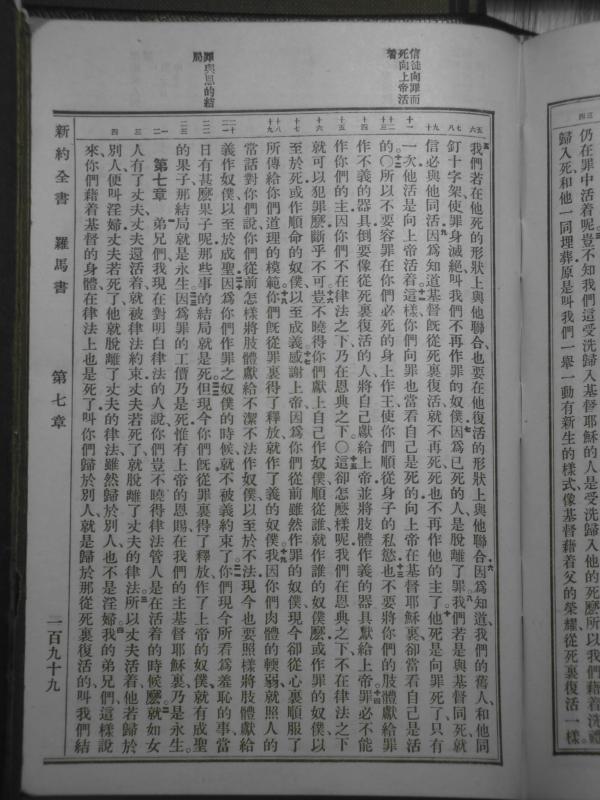 三四
仍在罪中活着呢豈不知我們這受洗歸入基督耶穌的人是受洗歸入他的死所以我們藉着洗禮
歸入死和他一同埋葬原是叫我們一舉一動有新生的樣式像基督藉着父的榮耀從死裏復活一樣
信徒向罪而
死向上帝活
着
罪與恩的結
局
五六
我們若在他死的形狀上與他聯合也要在他復活的形狀上與他聯合因爲知道我們的舊人和他同
七八
釘十字架使罪身滅絕叫我們不再作罪的奴僕因爲已死的人是脫離了罪我們若是與基督同死就
九十
信必與他同活因爲知道基督旣從死裏復活就不再死死也不再作他的主了他死是向罪死了只有
十一
一次他活是向上帝活着這樣你們向罪也當看自己是死的向上帝在基督耶穌裏卻當看自己是活
十二十三
的〇所以不要容罪在你們必死的身上作王使你們順從身子的私慾也不要將你們的肢體獻給罪
十四
作不義的器具倒要像從死裏復活的人將自己獻給上帝並將肢體作義的器具獻給上帝罪必不能
十五
作你們的主因你們不在律法之下乃在恩典之下〇這卻怎麽樣呢我們在恩典之下不在律法之下
十六
就可以犯罪麽斷乎不可豈不曉得你們獻上自己作奴僕順從誰就作誰的奴僕麽或作罪的奴僕以
十七
至於死或作順命的奴僕以至成義感謝上帝因爲你們從前雖然作罪的奴僕現今卻從心裏順服了
十八十九
所傳給你們道理的模範你們旣從罪裏得了釋放就作了義的奴僕我因你們肉體的輭弱就照人的
常話對你們說你們從前怎樣將肢體獻給不潔不法作奴僕以至於不法現今也要照樣將肢體獻給
二十二一
義作奴僕以至於成聖因爲你們作罪之奴僕的時候就不被義約束了你們現今所看爲羞恥的事當
二二
日有甚麽果子呢那些事的結局就是死但現今你們旣從罪裏得了釋放作了上帝的奴僕就有成聖
二三
的果子那結局就是永生因爲罪的工價乃是死惟有上帝的恩賜在我們的主基督耶穌裏乃是永生
一二
第七章 弟兄們我現在對明白律法的人說你們豈不曉得律法管人是在活着的時候麽就如女
三
人有了丈夫丈夫還活着就被律法約束丈夫若死了就脫離了丈夫的律法所以丈夫活着他若歸於
四
別人便叫淫婦丈夫若死了他就脫離了丈夫的律法雖然歸於別人也不是淫婦我的弟兄們這樣說
來你們藉着基督的身體在律法上也是死了叫你們歸於別人就是歸於那從死裏復活的叫我們結
新約全書 羅馬書 第七章 二百九十九